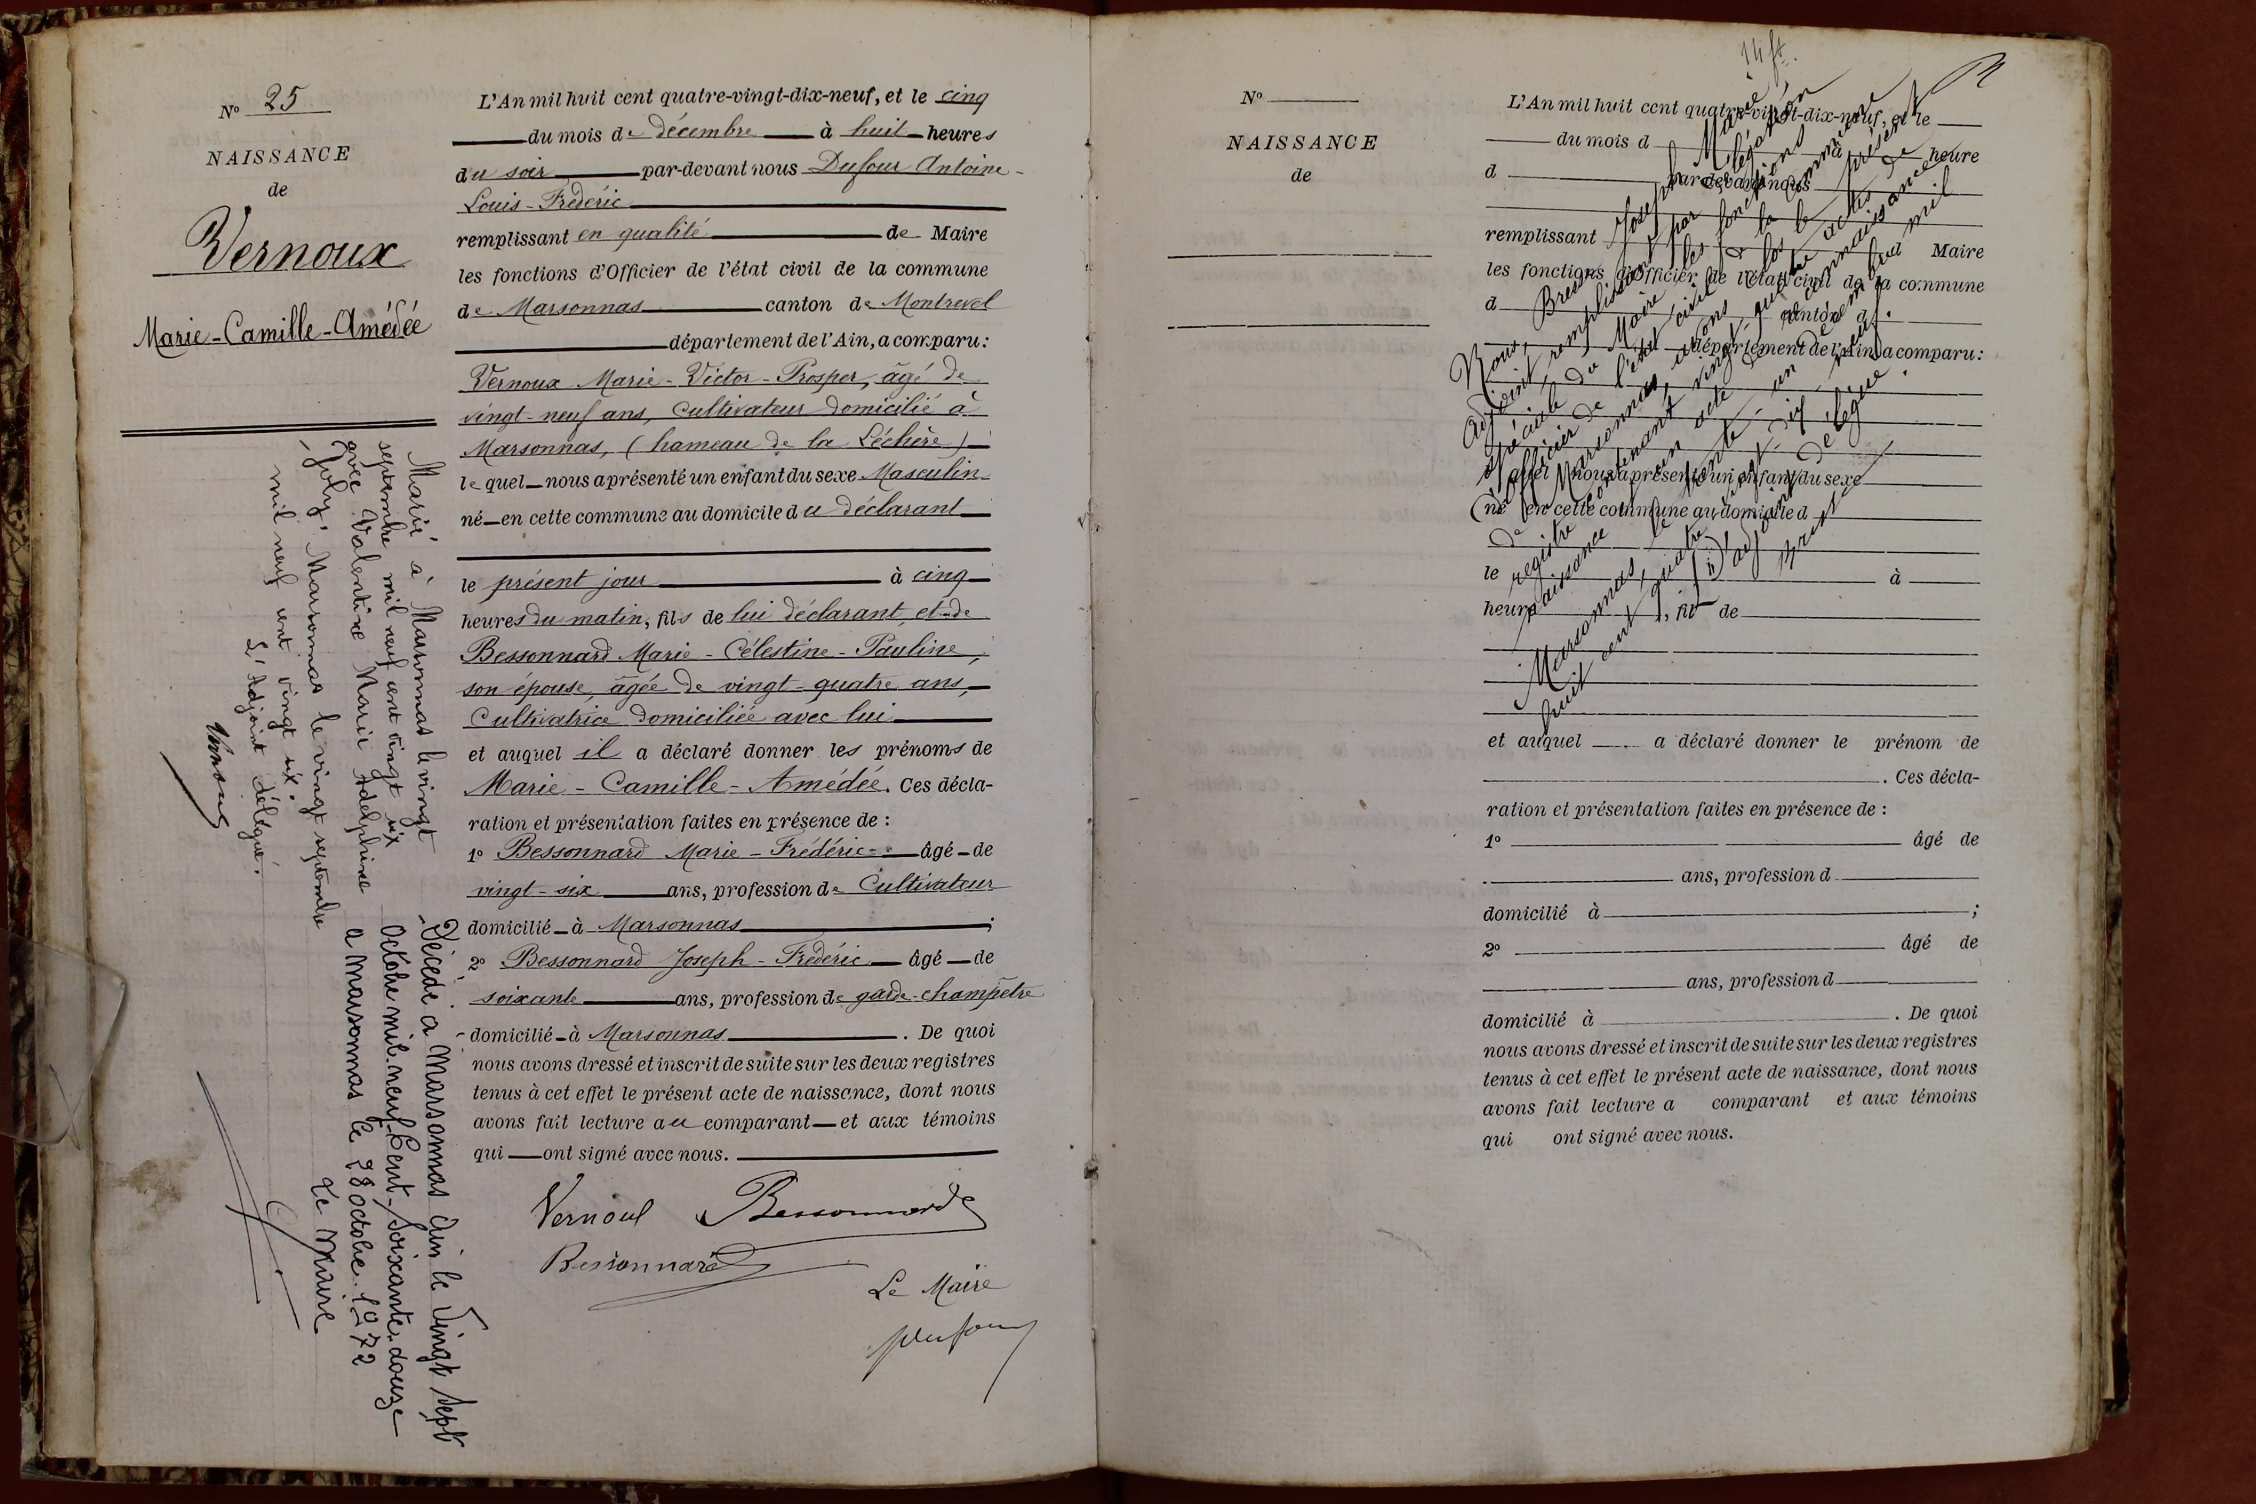 N° 25
NAISSANCE
de
Vernoux
Marie-Camille-Amédée
Marié à Marsonnas le vingt
septembre mil neuf cent vingt six
avec Valentine Marie Adelphine
Joly. Marsonnas le vingt septembre
mil neuf cent vingt six.
L'Adjoint délégué.
Décédé a Marsonnas Ain le Vingt Sept
Octobre mil-neuf-Cent-Soixante-douze
a Marsonnas le 28 octobre 1972
Le Maire
L'An mil huit cent quatre-vingt-dix-neuf, et le cinq
du mois de décembre à huit heures
du soir par-devant nous Dufour Antoine-
Louis-Frédéric
remplissant en qualité de Maire
les fonctions d'Officier de l'état civil de la commune
de Marsonnas canton de Montrevel
département de l'Ain, a comparu :
Vernoux Marie-Victor-Prosper, âgé de
vingt-neuf ans, Cultivateur domicilié à
Marsonnas, (hameau de la Léchère)
lequel nous a présenté un enfant du sexe Masculin
né en cette commune au domicile du déclarant
le présent jour à cinq
heures du matin, fils de lui déclarant, et de
Bessonnard Marie-Célestine-Pauline,
son épouse, âgée de vingt-quatre ans,
Cultivatrice domiciliée avec lui
et auquel il a déclaré donner les prénoms de
Marie-Camille-Amédée. Ces décla-
ration et présentation faites en présence de :
1° Bessonnard Marie-Frédéric âgé de
vingt-six ans, profession de Cultivateur
domicilié à Marsonnas ;
2° Bessonnard Joseph-Frédéric âgé de
soixante ans, profession de garde-champêtre
domicilié à Marsonnas . De quoi
nous avons dressé et inscrit de suite sur les deux registres
tenus à cet effet le présent acte de naissance, dont nous
avons fait lecture au comparant et aux témoins
qui ont signé avec nous.
Vernoux Bessonnard
Bessonnard
Le Maire
Dufour
N°
NAISSANCE
de
L'An mil huit cent quatre-vingt-dix-neuf, et le
du mois d à heure
d par-devant nous
remplissant Maire
les fonctions d'Officier de l'état civil de la commune
d canton d
département de l'Ain, a comparu :
lequel nous a présenté un enfant du sexe
né en cette commune au domicile d
le à
heure , fil de
et auquel a déclaré donner le prénom de
. Ces décla-
ration et présentation faites en présence de :
1° âgé de
ans, profession d
domicilié à ;
2° âgé de
ans, profession d
domicilié à . De quoi
nous avons dressé et inscrit de suite sur les deux registres
tenus à cet effet le présent acte de naissance, dont nous
avons fait lecture a comparant et aux témoins
qui ont signé avec nous.
Nous, Bressan Joseph Marie
Adjoint, remplissant par délégation
spéciale du Maire les fonctions
d'officier de l'état civil de la commune
de Marsonnas, avons clos le présent
registre contenant vingt-quatre actes de
naissance et un acte de reconnaissance
Marsonnas, le trente-un décembre mil
huit cent quatre-vingt-dix-neuf.
L'adjoint délégué.